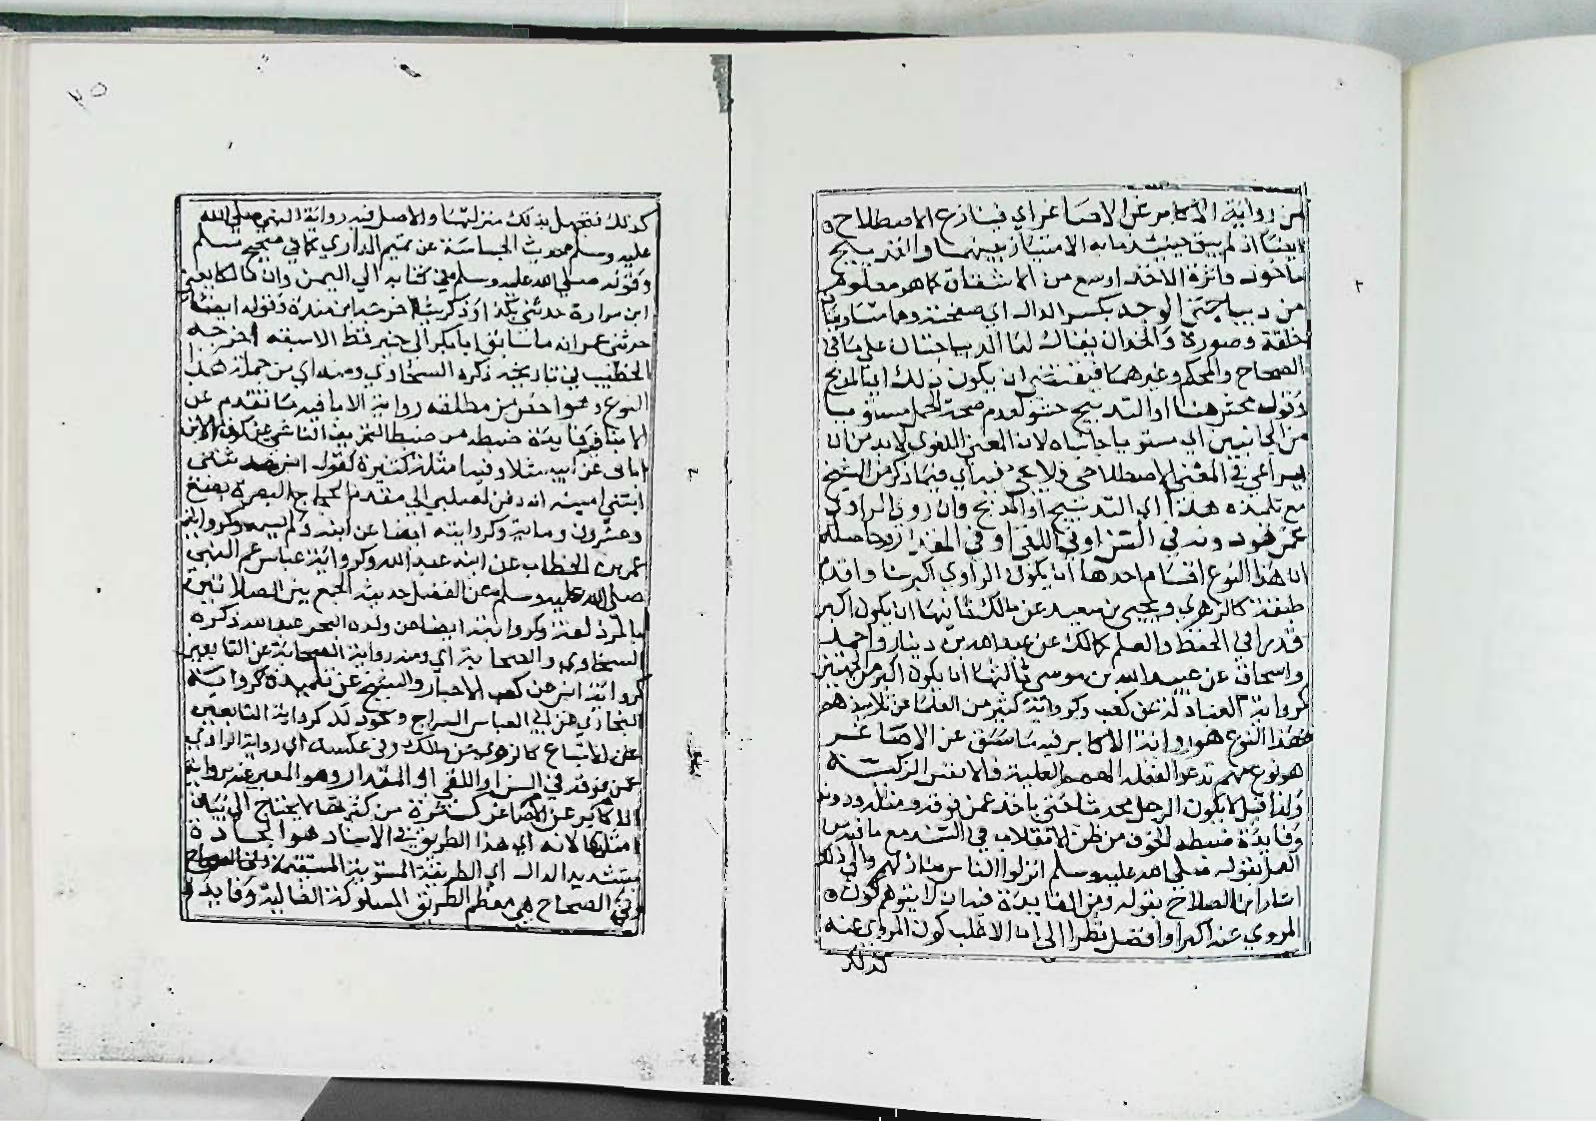 من رواية الاكابر عن الاصاغر اي فينازع الاصطلاح
ايضا اذ لم يبق حينئذ مابه الامتياز بينهما والمدبج
ماخوذ ودائرة الاخذ اوسع من الاشتقاق كما هو معلوم
من ديباجتي الوجه بكسر الدال اي صفحته وهما متساويتان
خلقة وصورة والخدان يقال لهما الديباجتان على ما في
الصحاح والمحكم وغيرهما فيقتضي ان يكون ذلك اي المدبج
وقوله مختص هنا او التدبيج مستويا
من الجانبين اي مستويا جانباه لان المعنى اللغوي لا بد من ان
يراعى في المعنى الاصطلاحي فلا يجيء فيه اي فيما ذكر من الشيخ
مع تلميذه هذا اي التدبيج او المدبج وان روى الراوي
عمن هو دونه في السن او في اللقي او في المقدار وحاصله
ان هذا النوع اقسام احدها ان يكون الراوي اكبر سنا واقدم
طبقة كالزهري ويحيى بن سعيد عن مالك ثانيها ان يكون اكبر
قدرا في الحفظ والعلم كمالك عن عبد الله بن دينار واحمد
واسحاق عن عبيد الله بن موسى ثالثها ان يكون اكبر من الجهتين
كرواية العبادلة عن كعب وكرواية كثير من العلما عن تلاميذهم
فهذا النوع هو رواية الاكابر فيه ما سبق عن الاصاغر
هو نوع مهم تدعو الفعله الهمم العلية والانفس الزكية
ولذا قيل لا يكون الرجل محدثا حتى ياخذ عمن فوقه ومثله ودونه
وفايدة ضبطه الخوف من ظن الانقلاب في السند مع ما فيه من
العمل بقوله صلى الله عليه وسلم انزلوا الناس منازلهم والى ذلك
اشار ابن الصلاح بقوله ومن الفايدة فيه ان لا يتوهم كون
المروي عنه اكبر او افضل نظرا الى ان الاغلب كون المروي عنه
كذلك
٣٥
كذلك فتجهل بذلك منزلتهما والاصل فيه رواية النبي صلى الله
عليه وسلم حديث الجساسة عن تميم الداري كما في صحيح مسلم
وقوله صلى الله عليه وسلم في كتابه الى اليمن وان مالكا يعني
ابن مرارة حدثني بكذا وذكر شيئا اخرجه ابن مندة وقوله ايضا
حدثني عمر انه ما سابق ابا بكر الى خير قط الا سبقه اخرجه
الخطيب في تاريخه ذكره السخاوي ومنه اي من جملة هذا
النوع وهو اخص من مطلقه رواية الابا فيه ما تقدم عن
الابنا وفايدة ضبطه من ضبط التحريف الناشي عن كون الابن
اتى عن ابيه مثلا وفيما مثله كثيرة كقول انس حدثتني
ابنتي امينة انه دفن لصلبي الى مقدم الحجاج البصرة بضع
وعشرون وماية وكروايته ايضا عن ابنه ولم يسمه وكرواية
عمر بن الخطاب عن ابنه عبد الله وكرواية عباس عم النبي
صلى الله عليه وسلم عن الفضل حديث الجمع بين الصلاتين
بالمزدلفة وكروايته ايضا عن ولده البحر عبد الله ذكره
السخاوي والصحابة اي ومنه رواية الصحابة عن التابعين
كرواية انس عن كعب الاحبار والشيخ عن تلميذه كرواية
البخاري عن ابي العباس السراج ونحو ذلك كرواية التابعين
عن الاتباع كالزهري عن مالك وفي عكسه اي رواية الراوي
عمن فوقه في السن او اللقي او المقدار وهو المعبر عنه برواية
الاكابر عن الاصاغر كثرة من كثرتها لا يحتاج الى بيان
امثلتها لانه اي هذا الطريق في الاسناد هو الجادة
بتشديد الدال اي الطريقة المستوية المستقيمة
وفي الصحاح هي معظم الطريق المسلوكة الغالبة وفايدة